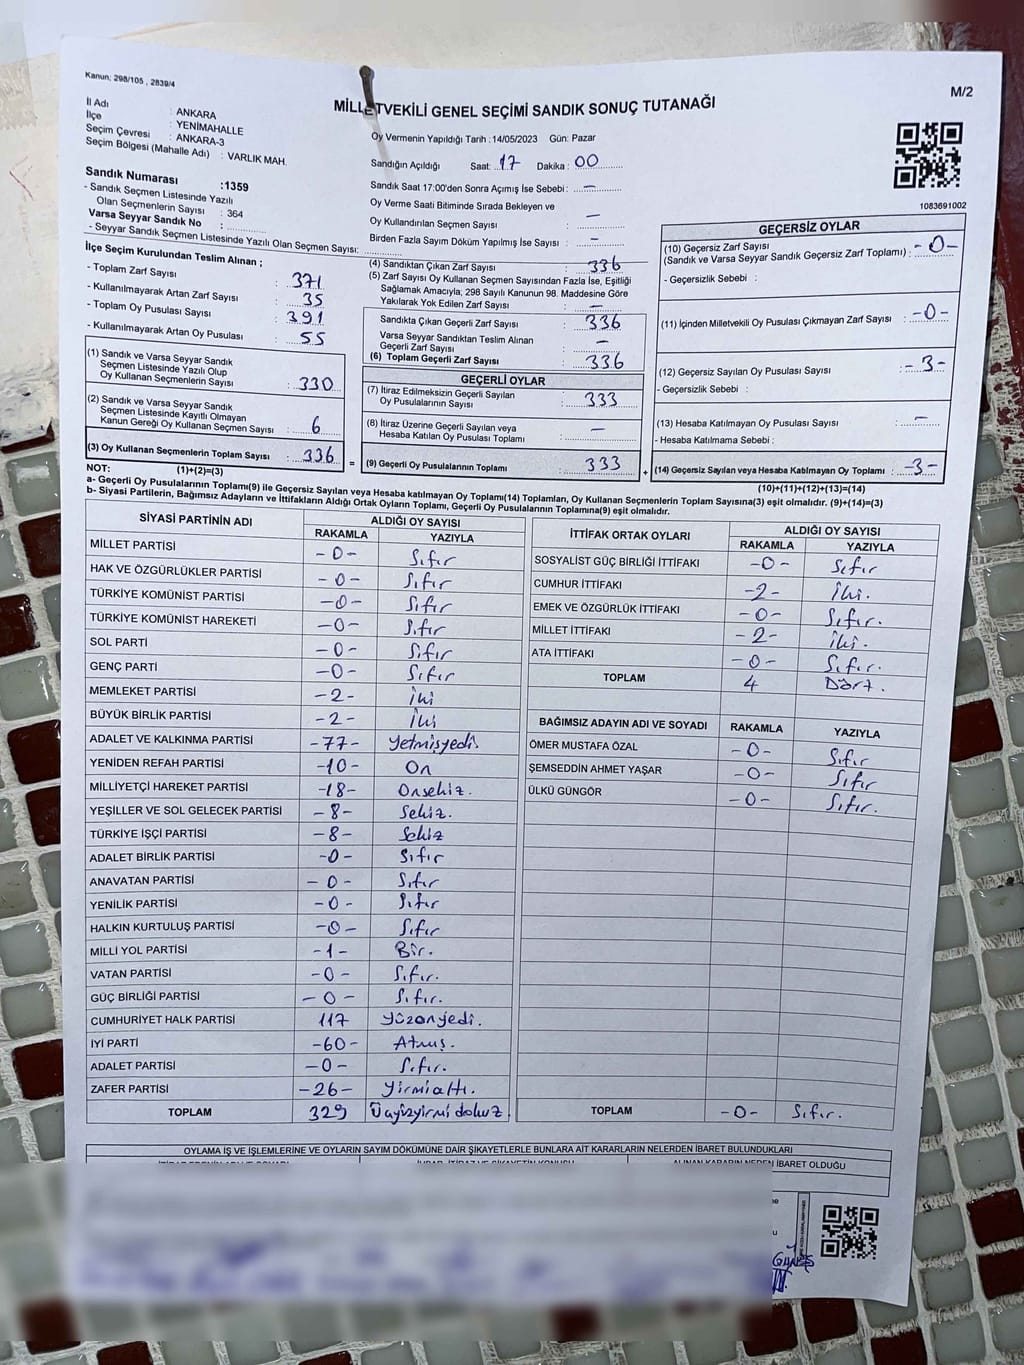 Kanun; 298/105 , 2839/4
M/2
MİLLETVEKİLİ GENEL SEÇİMİ SANDIK SONUÇ TUTANAĞI
İl Adı : ANKARA
İlçe : YENİMAHALLE
Seçim Çevresi : ANKARA-3
Seçim Bölgesi (Mahalle Adı) : VARLIK MAH.
Oy Vermenin Yapıldığı Tarih : 14/05/2023 Gün: Pazar
Sandığın Açıldığı Saat: 17 Dakika : 00
Sandık Saat 17:00'den Sonra Açımış İse Sebebi : -
Oy Verme Saati Bitiminde Sırada Bekleyen ve
Oy Kullandırılan Seçmen Sayısı -
Birden Fazla Sayım Döküm Yapılmış İse Sayısı : -
1083691002
Sandık Numarası :1359
- Sandık Seçmen Listesinde Yazılı
Olan Seçmenlerin Sayısı : 364
Varsa Seyyar Sandık No :
- Seyyar Sandık Seçmen Listesinde Yazılı Olan Seçmen Sayısı:
İlçe Seçim Kurulundan Teslim Alınan ;
- Toplam Zarf Sayısı : 371
- Kullanılmayarak Artan Zarf Sayısı : 35
- Toplam Oy Pusulası Sayısı : 391
- Kullanılmayarak Artan Oy Pusulası : 55
(1) Sandık ve Varsa Seyyar Sandık
Seçmen Listesinde Yazılı Olup
Oy Kullanan Seçmenlerin Sayısı : 330
(2) Sandık ve Varsa Seyyar Sandık
Seçmen Listesinde Kayıtlı Olmayan
Kanun Gereği Oy Kullanan Seçmen Sayısı : 6
(3) Oy Kullanan Seçmenlerin Toplam Sayısı : 336 =
(1)+(2)=(3)
(4) Sandıktan Çıkan Zarf Sayısı : 336
(5) Zarf Sayısı Oy Kullanan Seçmen Sayısından Fazla İse, Eşitliği
Sağlamak Amacıyla; 298 Sayılı Kanunun 98. Maddesine Göre
Yakılarak Yok Edilen Zarf Sayısı : -
Sandıkta Çıkan Geçerli Zarf Sayısı : 336
Varsa Seyyar Sandıktan Teslim Alınan
Geçerli Zarf Sayısı : -
(6) Toplam Geçerli Zarf Sayısı : 336
GEÇERLİ OYLAR
(7) İtiraz Edilmeksizin Geçerli Sayılan
Oy Pusulalarının Sayısı : 333
(8) İtiraz Üzerine Geçerli Sayılan veya
Hesaba Katılan Oy Pusulası Toplamı : -
(9) Geçerli Oy Pusulalarının Toplamı : 333 +
GEÇERSİZ OYLAR
(10) Geçersiz Zarf Sayısı
(Sandık ve Varsa Seyyar Sandık Geçersiz Zarf Toplamı) : -0-
- Geçersizlik Sebebi :
(11) İçinden Milletvekili Oy Pusulası Çıkmayan Zarf Sayısı : -0-
(12) Geçersiz Sayılan Oy Pusulası Sayısı : -3-
- Geçersizlik Sebebi :
(13) Hesaba Katılmayan Oy Pusulası : -
- Hesaba Katılmama Sebebi :
(14) Geçersiz Sayılan veya Hesaba Katılmayan Oy Toplamı : -3-
(10)+(11)+(12)+(13)=(14)
NOT:
a- Geçerli Oy Pusulalarının Toplamı(9) ile Geçersiz Sayılan veya Hesaba katılmayan Oy Toplamı(14) Toplamları, Oy Kullanan Seçmenlerin Toplam Sayısına(3) eşit olmalıdır. (9)+(14)=(3)
b- Siyasi Partilerin, Bağımsız Adayların ve İttifakların Aldığı Ortak Oyların Toplamı, Geçerli Oy Pusulalarının Toplamına(9) eşit olmalıdır.
SİYASİ PARTİNİN ADI ALDIĞI OY SAYISI
RAKAMLA YAZIYLA
MİLLET PARTİSİ -0- Sıfır
HAK VE ÖZGÜRLÜKLER PARTİSİ -0- Sıfır
TÜRKİYE KOMÜNİST PARTİSİ -0- Sıfır
TÜRKİYE KOMÜNİST HAREKETİ -0- Sıfır
SOL PARTİ -0- Sıfır
GENÇ PARTİ -0- Sıfır
MEMLEKET PARTİSİ -2- İki
BÜYÜK BİRLİK PARTİSİ -2- İki
ADALET VE KALKINMA PARTİSİ -77- Yetmişyedi
YENİDEN REFAH PARTİSİ -10- On
MİLLİYETÇİ HAREKET PARTİSİ -18- Onsekiz.
YEŞİLLER VE SOL GELECEK PARTİSİ -8- Sekiz.
TÜRKİYE İŞÇİ PARTİSİ -8- Sekiz
ADALET BİRLİK PARTİSİ -0- Sıfır
ANAVATAN PARTİSİ -0- Sıfır
YENİLİK PARTİSİ -0- Sıfır
HALKIN KURTULUŞ PARTİSİ -0- Sıfır
MİLLİ YOL PARTİSİ -1- Bir.
VATAN PARTİSİ -0- Sıfır.
GÜÇ BİRLİĞİ PARTİSİ -0- Sıfır.
CUMHURİYET HALK PARTİSİ 117 Yüzonyedi.
İYİ PARTİ -60- Atmış.
ADALET PARTİSİ -0- Sıfır.
ZAFER PARTİSİ -26- Yirmialtı.
TOPLAM 329 Üçyüzyirmidokuz.
İTTİFAK ORTAK OYLARI ALDIĞI OY SAYISI
RAKAMLA YAZIYLA
SOSYALİST GÜÇ BİRLİĞİ İTTİFAKI -0- Sıfır
CUMHUR İTTİFAKI -2- İki.
EMEK VE ÖZGÜRLÜK İTTİFAKI -0- Sıfır.
MİLLET İTTİFAKI -2- İki.
ATA İTTİFAKI -0- Sıfır.
TOPLAM 4 Dört.
BAĞIMSIZ ADAYIN ADI VE SOYADI RAKAMLA YAZIYLA
ÖMER MUSTAFA ÖZAL -0- Sıfır
ŞEMSEDDİN AHMET YAŞAR -0- Sıfır
ÜLKÜ GÜNGÖR -0- Sıfır.
TOPLAM -0- Sıfır.
OYLAMA İŞ VE İŞLEMLERİNE VE OYLARIN SAYIM DÖKÜMÜNE DAİR ŞİKAYETLERLE BUNLARA AİT KARARLARIN NELERDEN İBARET BULUNDUKLARI
ALINAN KARARIN NEDEN İBARET OLDUĞU